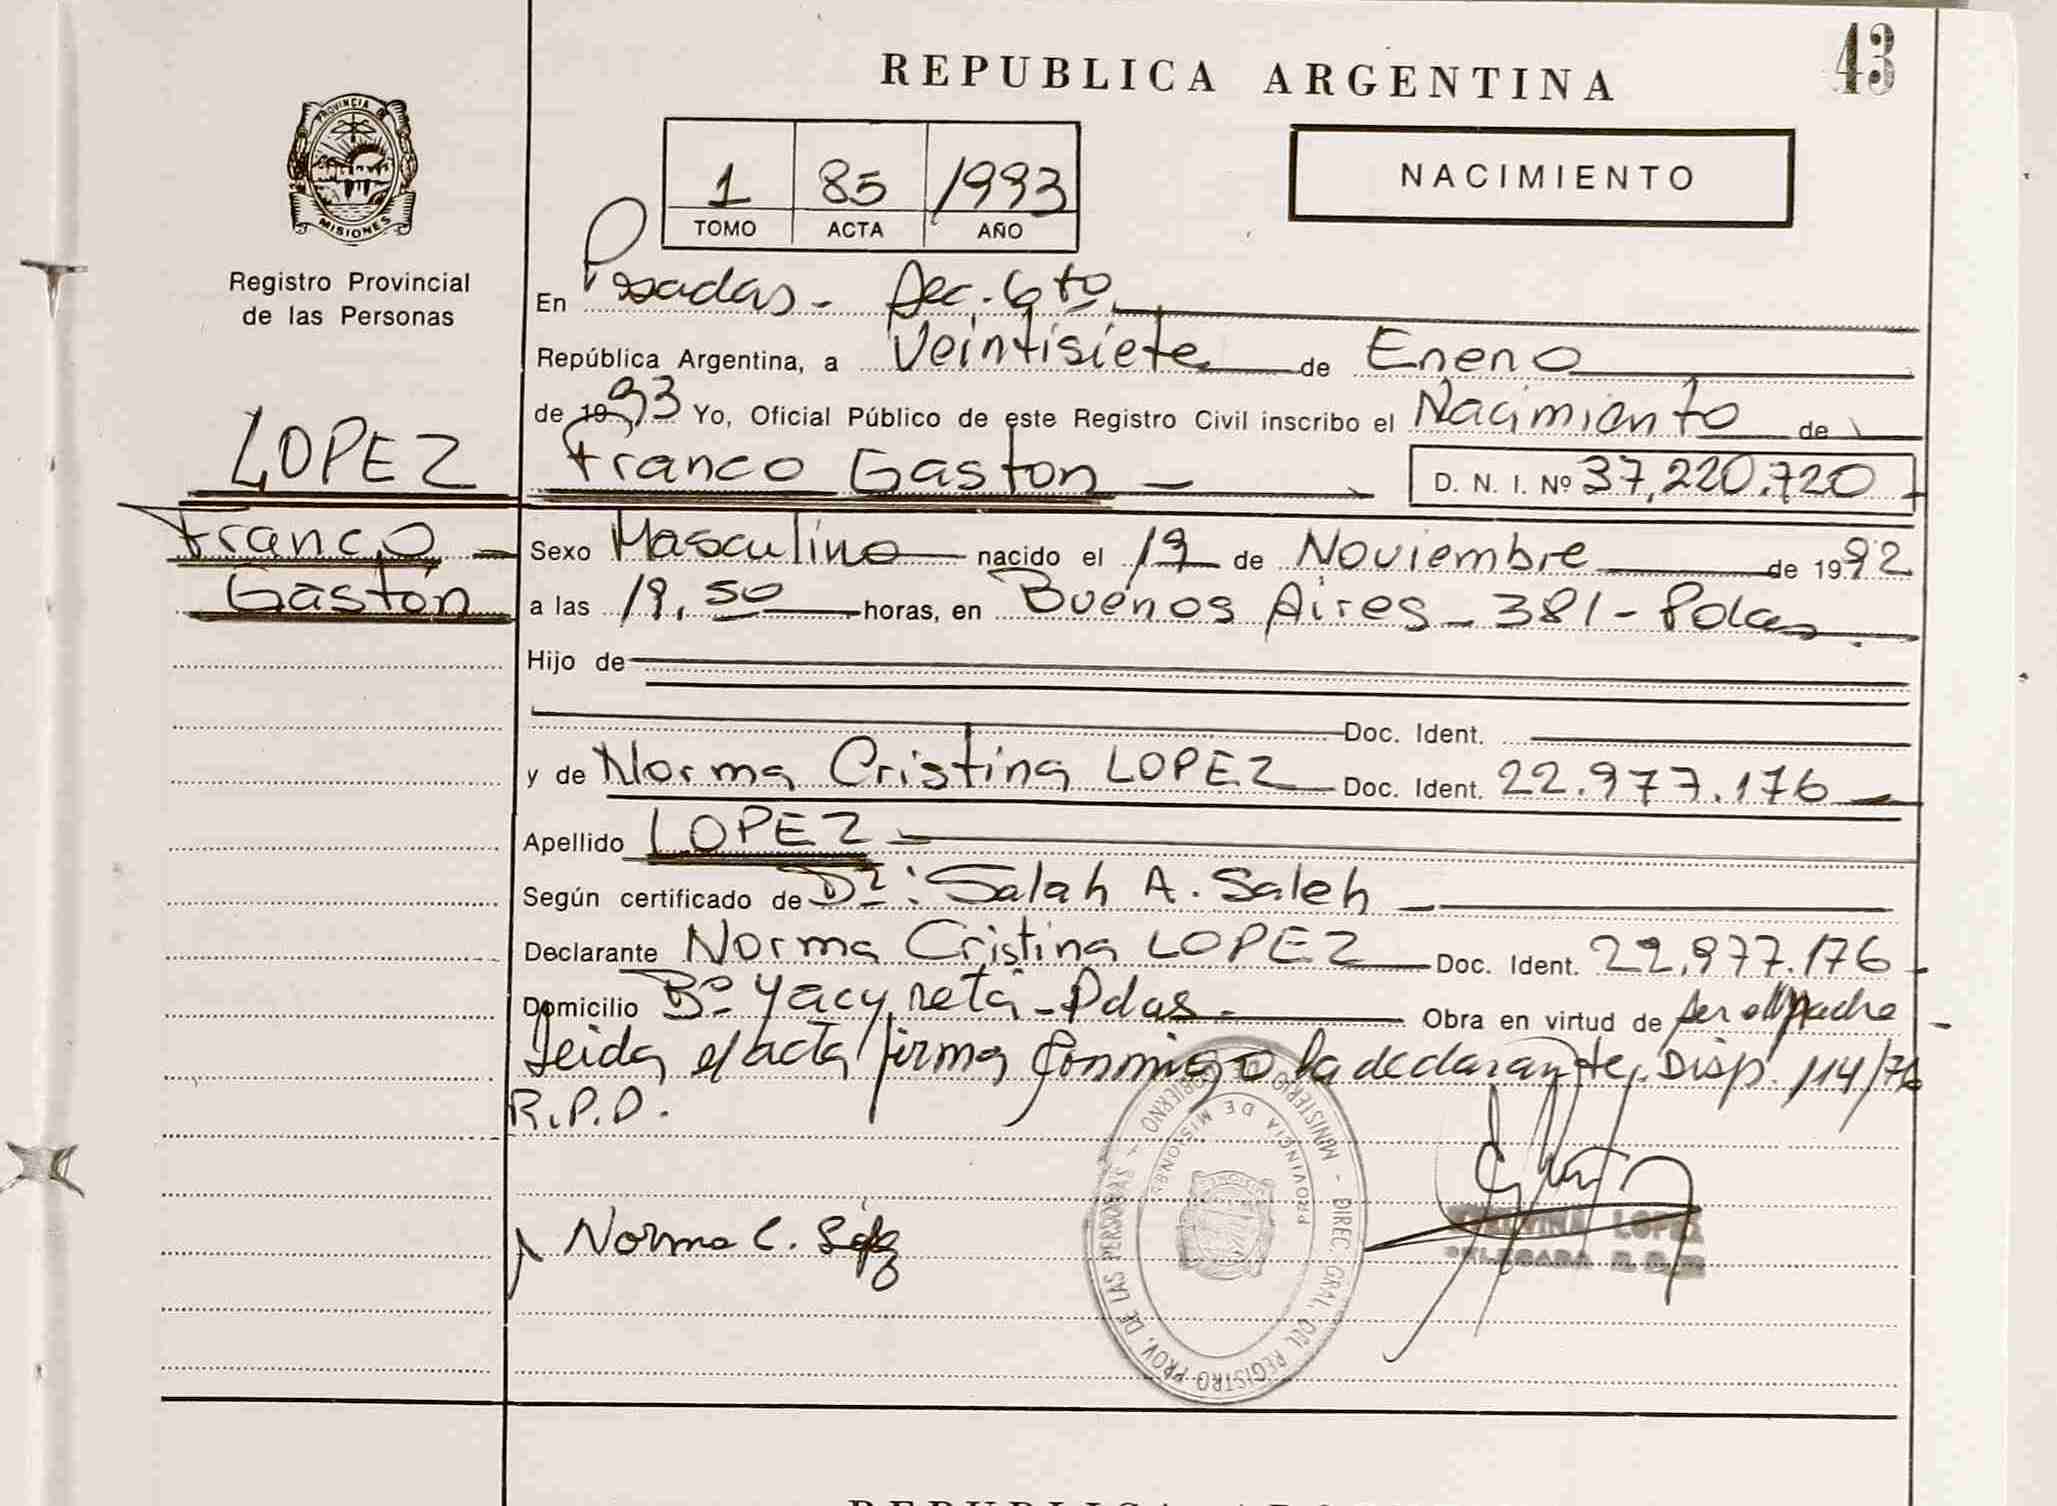 43
REPUBLICA ARGENTINA
NACIMIENTO
1 85 1993
TOMO ACTA AÑO
PROVINCIA DE
MISIONES
Registro Provincial
de las Personas
LOPEZ
Franco
Gastón
En Posadas - Sec. 6to
República Argentina, a Veintisiete de Enero
de 1993 Yo, Oficial Público de este Registro Civil inscribo el Nacimiento de
Franco Gaston D. N. I. Nº 37,220.720
Sexo Masculino nacido el 19 de Noviembre de 1992
a las 19,50 horas, en Buenos Aires - 381 - Pdas
Hijo de
Doc. Ident.
y de Norma Cristina LOPEZ Doc. Ident. 22.977.176
Apellido LOPEZ
Según certificado de Dr: Salah A. Saleh
Declarante Norma Cristina LOPEZ Doc. Ident. 22.977.176
Domicilio Bº Yacyretá - Pdas Obra en virtud de ser
Leida el acta firma conmigo la declarante. Disp. 114/76
R.P.D.
Norma C. López
MINISTERIO GOBIERNO - DIREC. GRAL. DEL REGISTRO PROV. DE LAS PERSONAS
PROVINCIA DE MISIONES
LOPEZ